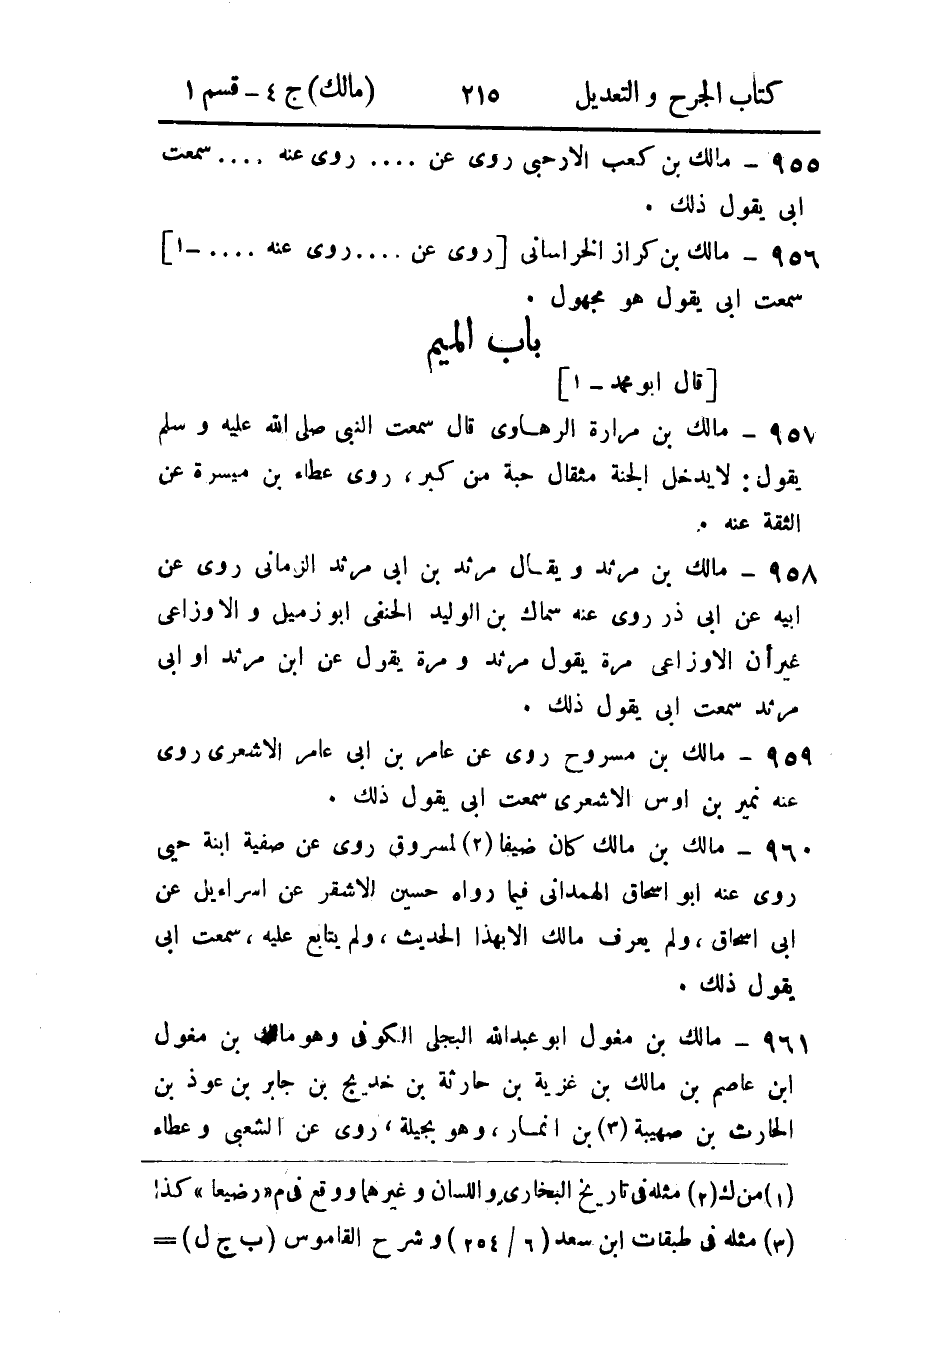 كتاب الجرح و التعديل ٢١٥ (مالك) ج ٤ – قسم ١
٩٥٥ – مالك بن كعب الارحبى روى عن .... روى عنه .... سمعت
ابى يقول ذلك .
٩٥٦ – مالك بن كراز الخراسانى [روى عن .... روى عنه .... –١]
سمعت ابى يقول هو مجهول .
باب الميم
[قال ابو محمد – ١]
٩٥٧ – مالك بن مرارة الرهاوى قال سمعت النبى صلى الله عليه و سلم
يقول: لايدخل الجنة مثقال حبة من كبر، روى عطاء بن ميسرة عن
الثقة عنه .
٩٥٨ – مالك بن مرثد و يقال مرثد بن ابى مرثد الزمانى روى عن
ابيه عن ابى ذر روى عنه سماك بن الوليد الحنفى ابو زميل و الاوزاعى
غير أن الاوزاعى مرة يقول مرثد و مرة يقول عن ابن مرثد او ابى
مرثد سمعت ابى يقول ذلك .
٩٥٩ – مالك بن مسروح روى عن عامر بن ابى عامر الاشعرى روى
عنه نمير بن اوس الاشعرى سمعت ابى يقول ذلك .
٩٦٠ – مالك بن مالك كان ضيفا (٢) لمسروق روى عن صفية ابنة حيى
روى عنه ابو اسحاق الهمدانى فيما رواه حسين الاشقر عن اسراءيل عن
ابى اسحاق، ولم يعرف مالك الابهذا الحديث، ولم يتابع عليه، سمعت ابى
يقول ذلك .
٩٦١ – مالك بن مغول ابو عبدالله البجلى الكوفى وهو مالك بن مغول
ابن عاصم بن مالك بن غزية بن حارثة بن خديج بن جابر بن عوذ بن
الحارث بن صهيبة (٣) بن انمار، وهو بجيلة، روى عن الشعبى و عطاء
(١) من ك (٢) مثله فى تاريخ البخارى واللسان و غيرهما ووقع فى م «رضيعا» كذا
(٣) مثله فى طبقات ابن سعد (٦ / ٢٥٤) و شرح القاموس (ب ج ل) =